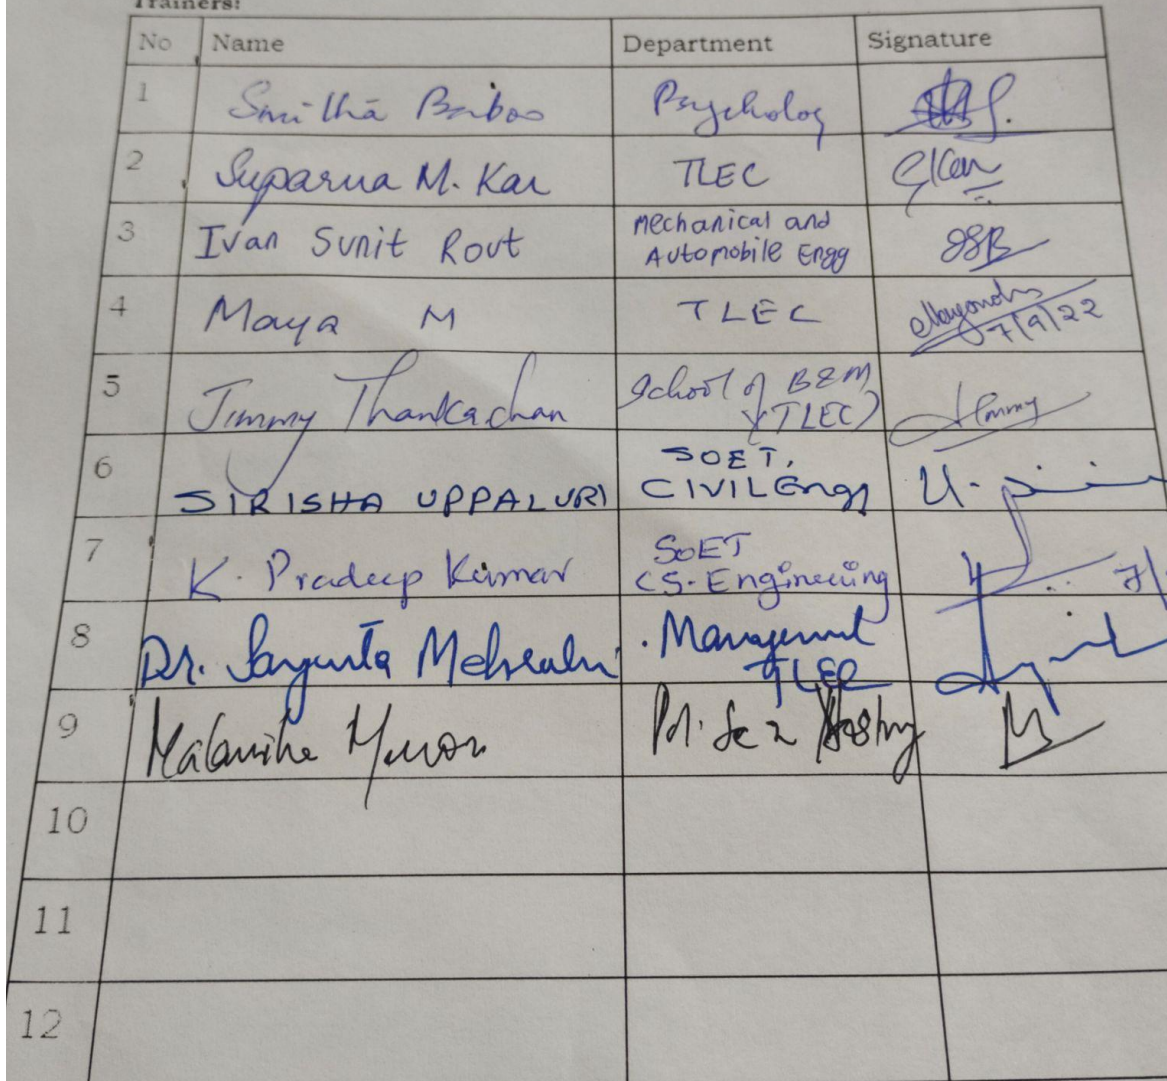 Trainers:
No Name Department Signature
1 Smitha Baboo Psycholog
2 Suparna M. Kar TLEC SKar
3 Ivan Sunit Rout Mechanical and
Automobile Engg ISR
4 Maya M TLEC
7/9/22
5 Jimmy Thankachan School of B&M
(TLEC) Jimmy
6 SIRISHA UPPALURI SOET,
CIVIL Engg U.
7 K. Pradeep Kumar SoET
CS-Engineering 7/
8 Dr. Sanyukta Management
TLEC
9 Malavika Menon Pol. Sc & History
10
11
12